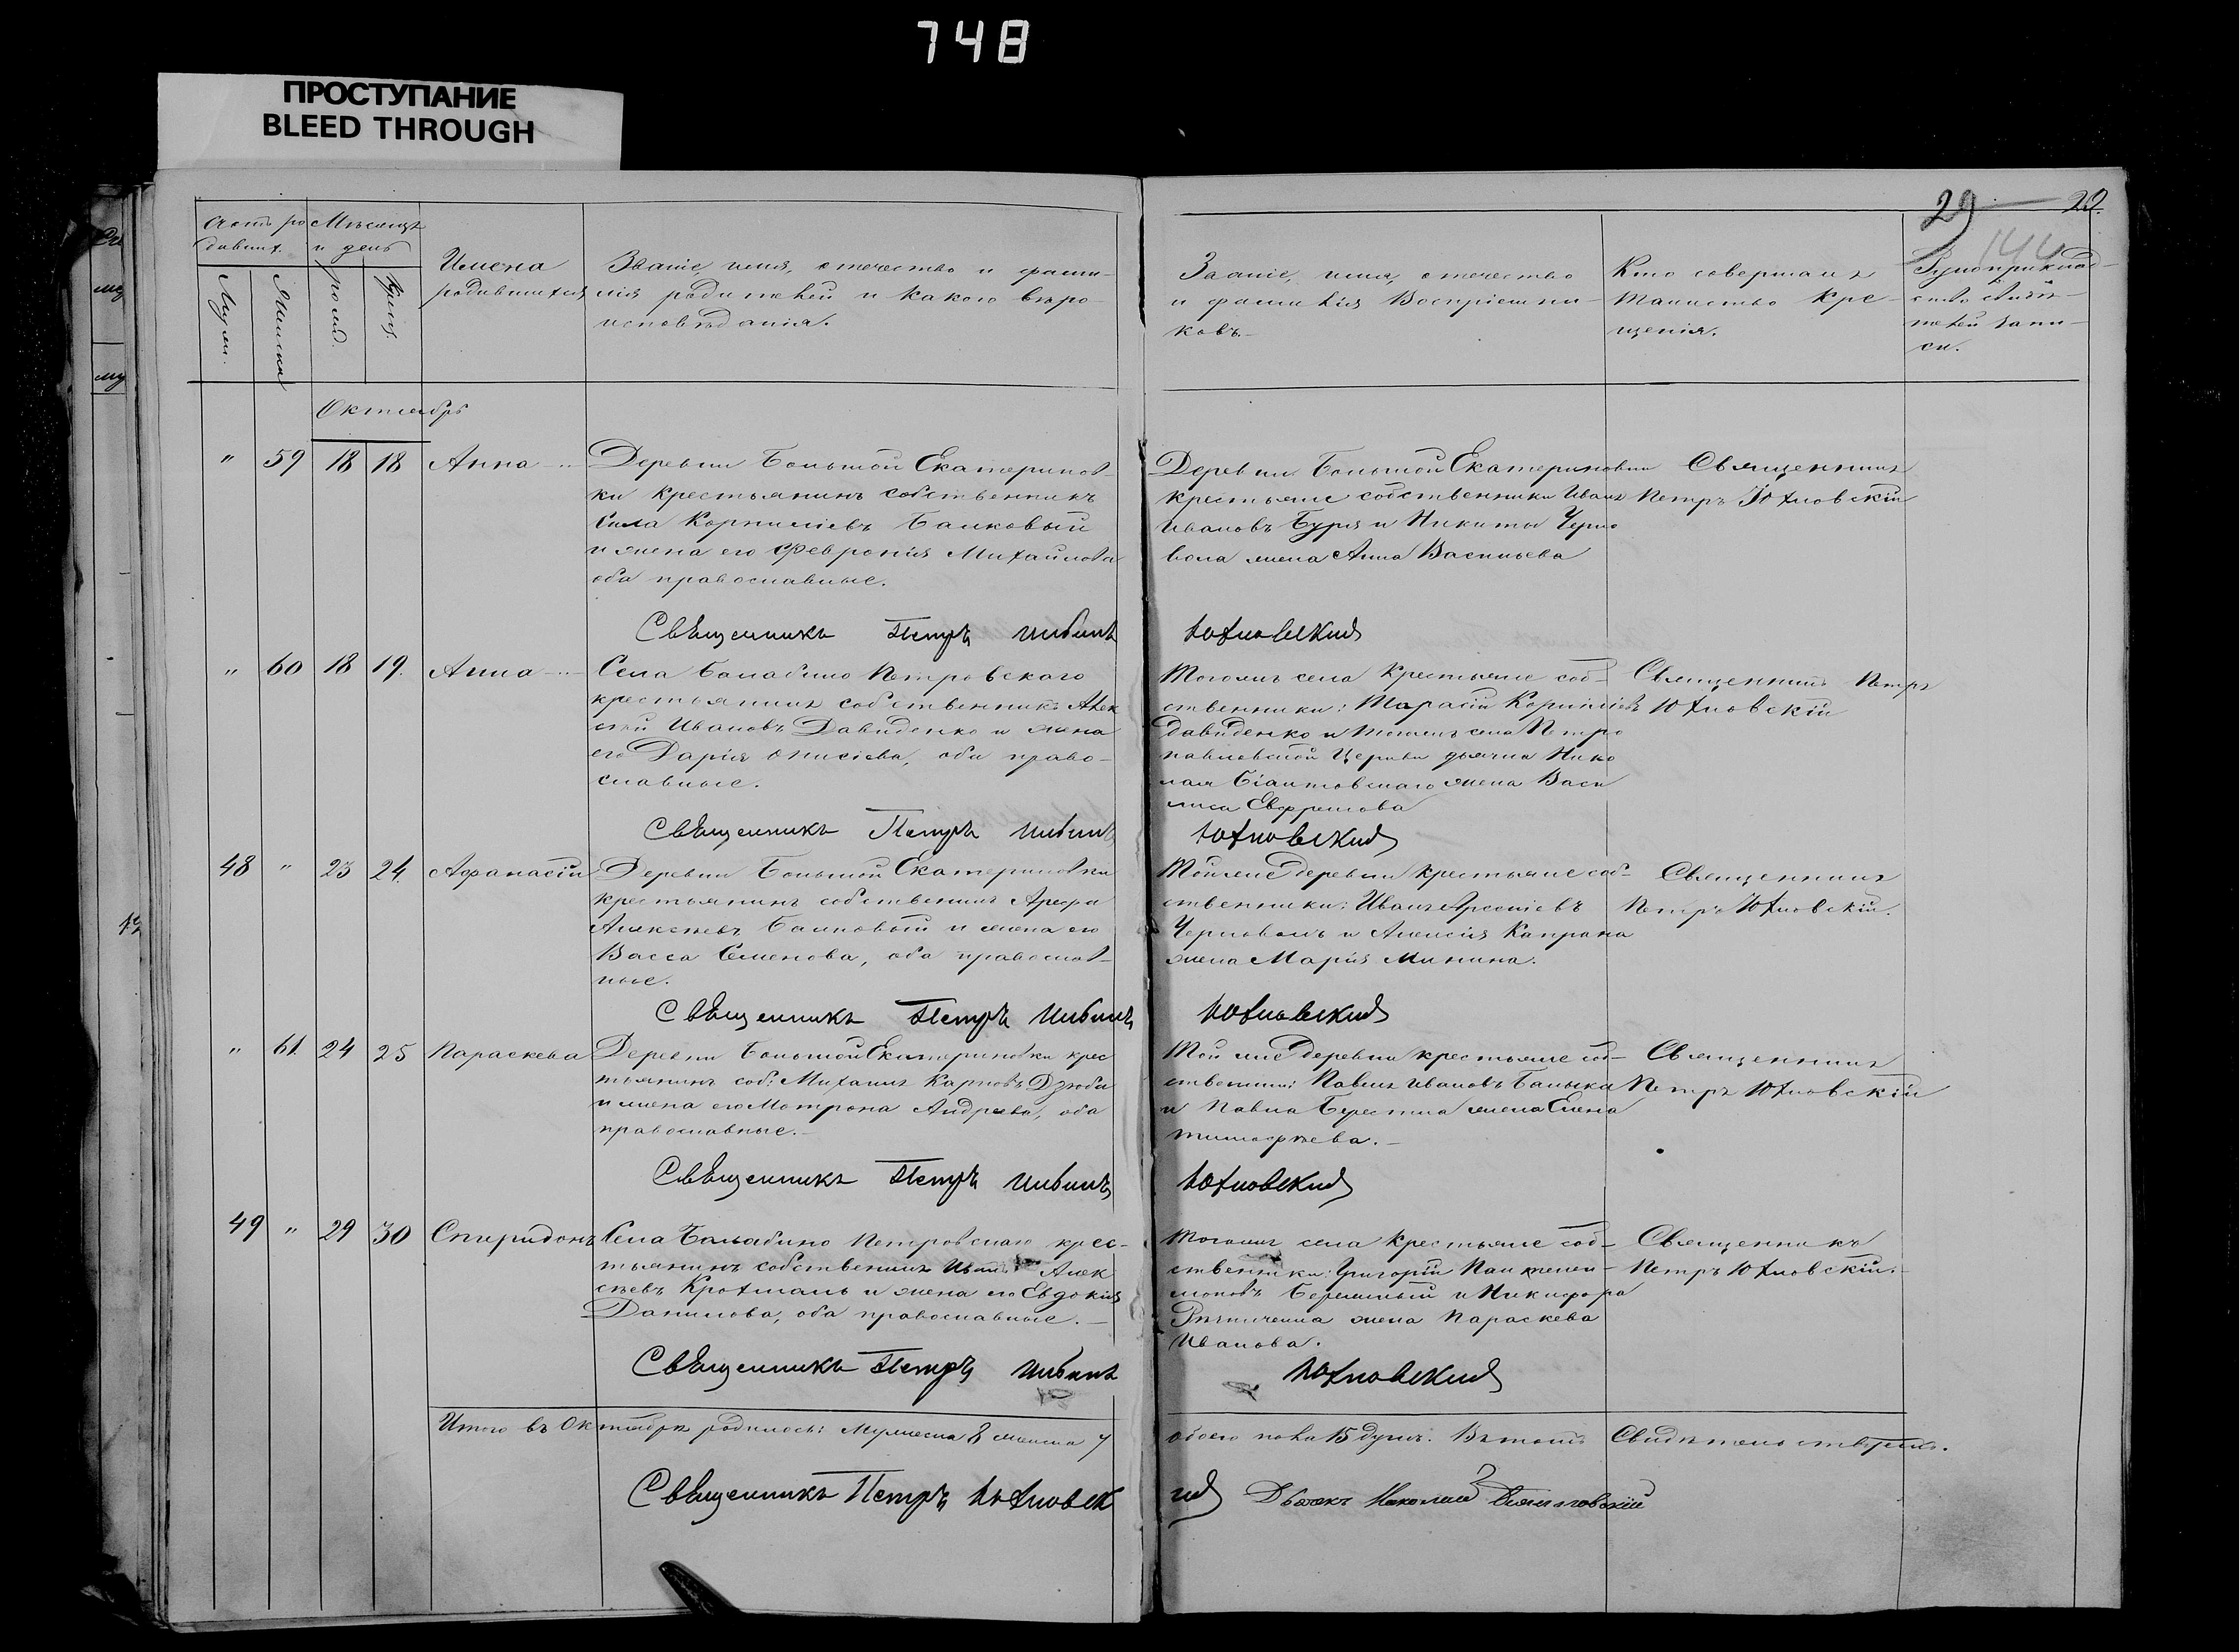 748
ПРОСТУПАНИЕ
BLEED THROUGH
29 29.
144
Счетъ ро Мѣсяцъ
дивших. и день
Мужеск. Женска рожд. крещ.
Имена
родившихся
Званіе, имя, отечество и фами-
лія родителей и какого вѣро-
исповѣданія.
Званіе, имя, отечество
и фамилія Воспріемни-
ковъ.
Кто совершалъ
таинство Кре-
щенія.
Рукоприклад-
ство свидѣ-
телей запи-
си.
Октябрь
" 59 18 18 Анна
Деревни Большой Екатеринов
ки крестьянинъ собственникъ
Сила Корниліевъ Балковый
и жена его Февронія Михайлова
оба православные.
Деревни Большой Екатериновки
крестьяне собственники Иванъ
Ивановъ Буря и Никиты Черно
вола жена Анна Васильева
Священникъ
Петръ Юхновскій
Священникъ Петръ Юхновский
" 60 18 19. Анна
Села Балабино Петровскаго
крестьянинъ собственникъ Алек
сѣй Ивановъ Давиденко и жена
его Дарія Онисіева, оба право-
славные.
Тогожъ села крестьяне соб-
ственники: Тарасій Корниліевъ
Давиденко и тогожъ села Петро
павловской Церкви дьячка Нико
лая жена Васи
лиса Ефремова
Священникъ Петръ
Юхновскій
Священникъ Петръ Юхновский
48 " 23 24. Афанасій
Деревни Большой Екатериновки
крестьянинъ собственникъ Арефа
Алексѣевъ Балковый и жена его
Васса Семенова, оба православ-
ные.
Тойже деревни крестьяне соб-
ственники: Иванъ Арсеніевъ
Черноволъ и Алексія Капрана
жена Марія Минина.
Священникъ
Петръ Юхновскій.
Священникъ Петръ Юхновский
" 61. 24 25 Параскева
Деревни Большой Екатериновки крес
тьянинъ соб: Михаилъ Карповъ Дзюба
и жена его Мотрона Андреева, оба
православные.
Той же деревни крестьяне соб-
ственники: Павелъ Ивановъ
и Павла жена Елена
Тимофѣева.
Священникъ
Петръ Юхновскій
Священникъ Петръ Юхновский
49 " 29 30 Спиридонъ
Села Балабино Петровскаго крес-
тьянинъ собственникъ Алек
сѣевъ Крохмаль и жена его Евдокія
Данилова, оба православные.
Тогожъ села крестьяне соб-
ственники: Григорій Пантелей-
моновъ и Никифора
жена Параскева
Иванова.
Священникъ
Петръ Юхновскій.
Священникъ Петръ Юхновский
Итого въ Октябрѣ родилось: Мужеска 8 женска 7
обоего пола 15 душъ. Въ томъ Свидѣтельствуемъ.
Священникъ Петръ Юхновск
ий Дьячекъ Николай